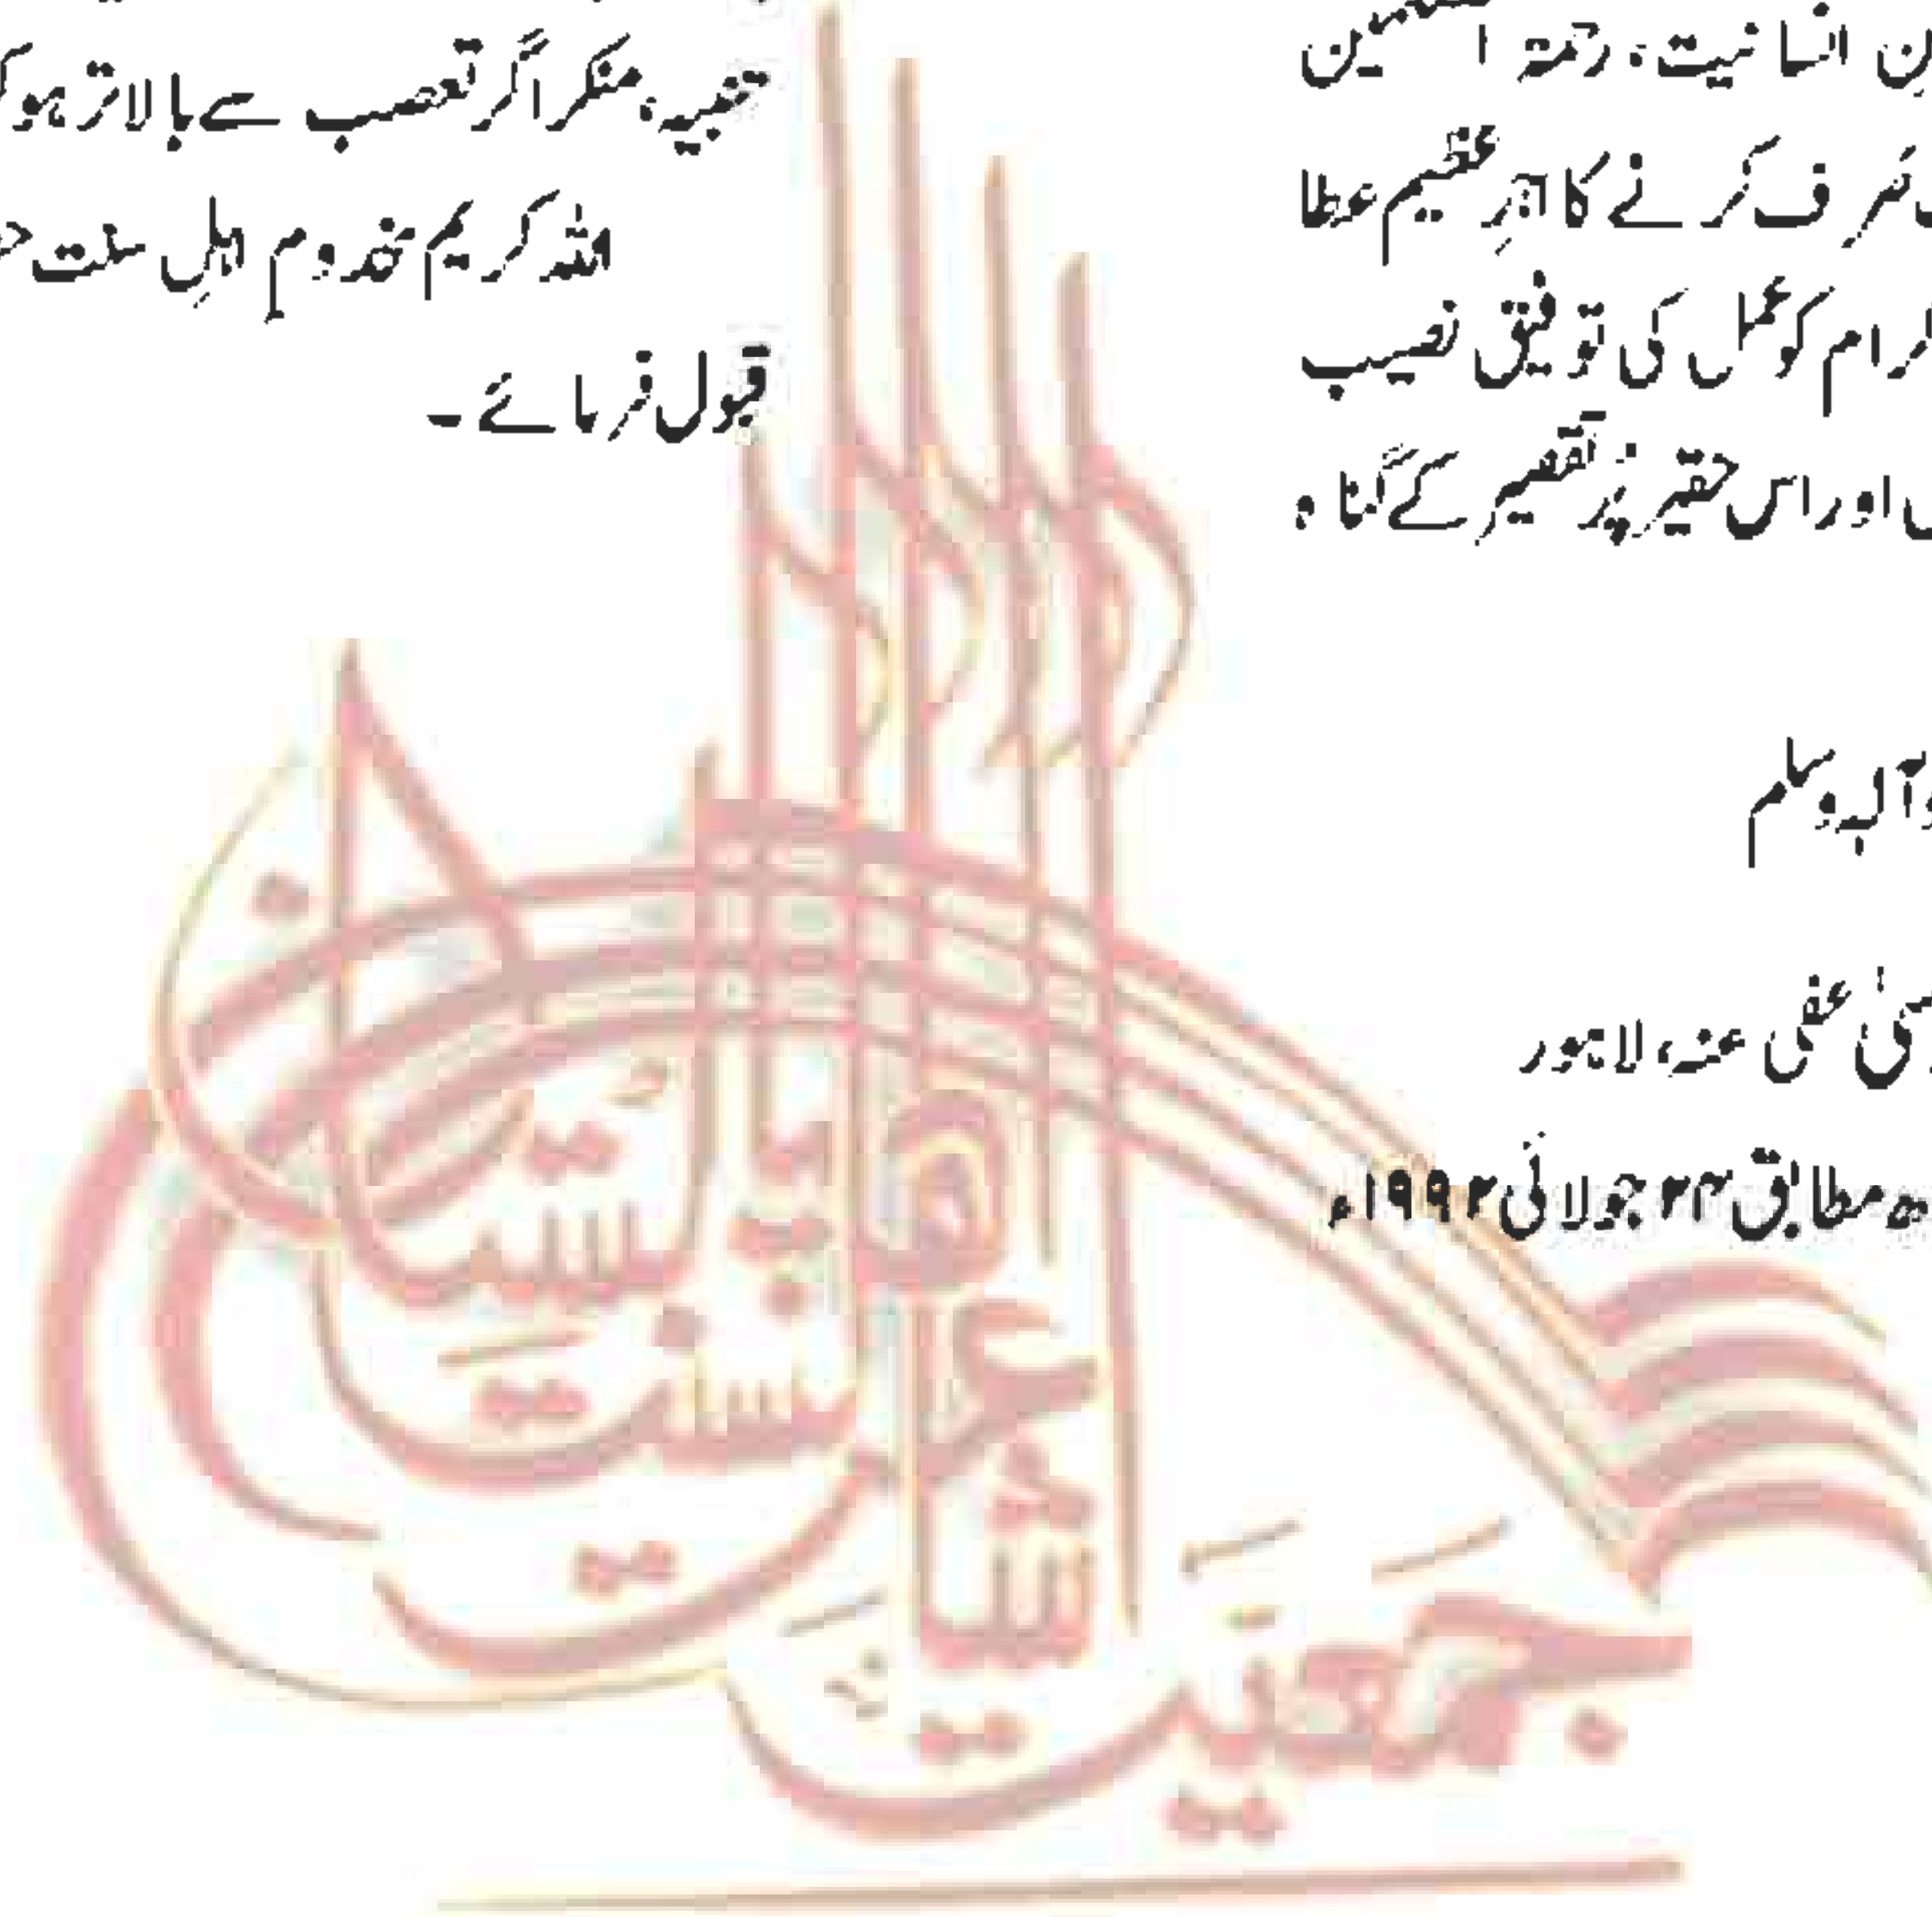 انسانیت، رحمۃ
کرنے کا اجرِ عظیم عطا
کو عمل کی توفیق نصیب
اور اس حقیر پُر تقصیر کے گناہ
وآلہٖ وسلم
عفی عنہ، لاہور
مطابق ۲۴ جولائی ۱۹۹۲ء
منکر اگر تعصب سے بالاتر
اللہ کریم مخدوم اہلِ سنت
قبول فرمائے۔
جمعیت
اشاعت
اہلسنت
پاکستان